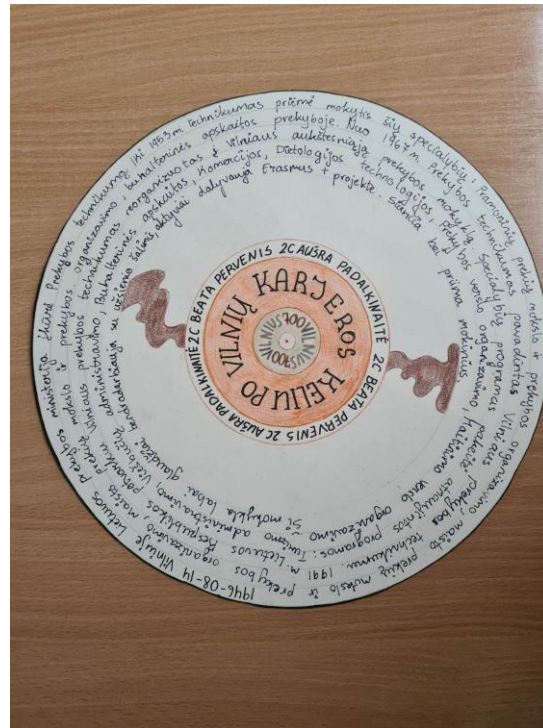 1946-08-14 Vilniuje Lietuvos prekybos ministerija įkūrė Prekybos technikumą. Iki 1953 m technikumas priėmė mokytis šių specialybių: Pramoninių prekių mokslo ir prekybos organizavimo, maisto prekių mokslo ir prekybos
organizavimo maisto prekių mokslo ir prekybos organizavimo, buhalterinės apskaitos prekyboje. Nuo 1967 m. Prekybos technikumas pavadintas Vilniaus prekybos technikumu. 1991
m. Lietuvos Respublikos potvarkiu Vilniaus prekybos technikumas reorganizuotas į Vilniaus aukštesniąją prekybos mokyklą. Specialybių programas pakeitė atnaujintos programos: Turizmo
administravimo, Viešbučių administravimo, Buhalterinės apskaitos, Komercijos, Dietologijos technologijos, Prekybos verslo organizavimo, Maitinimo verslo organizavimo
Ši mokykla labai glaudžiai bendradarbiauja su užsienio šalimis, aktyviai dalyvauja Erasmus + projekte, siunčia bei priima mokinius.
2C BEATA PERVENIS 2C AUŠRA PADALKINAITĖ 2C BEATA PERVENIS 2C AUŠRA PADALKINAITĖ
KARJEROS KELIU PO VILNIŲ
VILNIUS700VILNIUS700